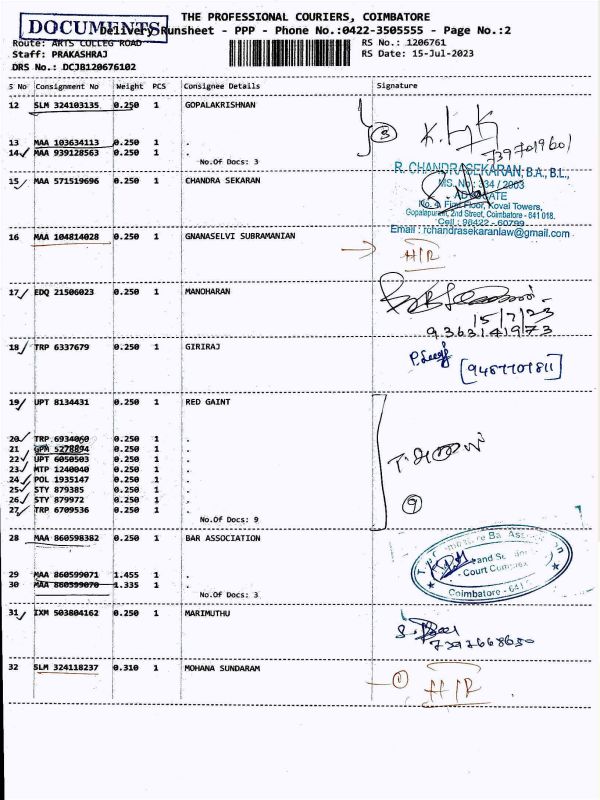 DOCUMENTS
THE PROFESSIONAL COURIERS, COIMBATORE
Delivery Runsheet - PPP - Phone No.:0422-3505555 - Page No.:2
Route: ARTS COLLEG ROAD RS No.: 1206761
Staff: PRAKASHRAJ RS Date: 15-Jul-2023
DRS No.: DCJB120676102
S No Consignment No Weight PCS Consignee Details Signature
12 SLM 324103135 0.250 1 GOPALAKRISHNAN
3
13 MAA 103634113 0.250 1 .
14 MAA 939128563 0.250 1 .
7397019601
No.Of Docs: 3
R. CHANDRASEKARAN, B.A., B.L.,
15 MAA 571519696 0.250 1 CHANDRA SEKARAN
MS. No : 334 / 2003
ADVOCATE
No. 4, First Floor, Koval Towers,
Gopalapuram, 2nd Street, Coimbatore - 641 018.
Cell : 98422 - 60799
Email : rchandrasekaranlaw@gmail.com
16 MAA 104814028 0.250 1 GNANASELVI SUBRAMANIAN
H/R
17 EDQ 21506023 0.250 1 MANOHARAN
15/7/23
9363141973
18 TRP 6337679 0.250 1 GIRIRAJ
9487701811
19 UPT 8134431 0.250 1 RED GAINT
20 TRP 6934060 0.250 1 .
21 GPM 5278894 0.250 1 .
22 UPT 6050503 0.250 1 .
23 MTP 1240040 0.250 1 .
24 POL 1935147 0.250 1 .
25 STY 879385 0.250 1 .
26 STY 879972 0.250 1 .
27 TRP 6709536 0.250 1 .
9
No.Of Docs: 9
28 MAA 860598382 0.250 1 BAR ASSOCIATION
Court
Coimbatore - 641
29 MAA 860599071 1.455 1 .
30 MAA 860599070 1.335 1 .
No.Of Docs: 3
31 IXM 503804162 0.250 1 MARIMUTHU
7397668650
32 SLM 324118237 0.310 1 MOHANA SUNDARAM
1 H/R